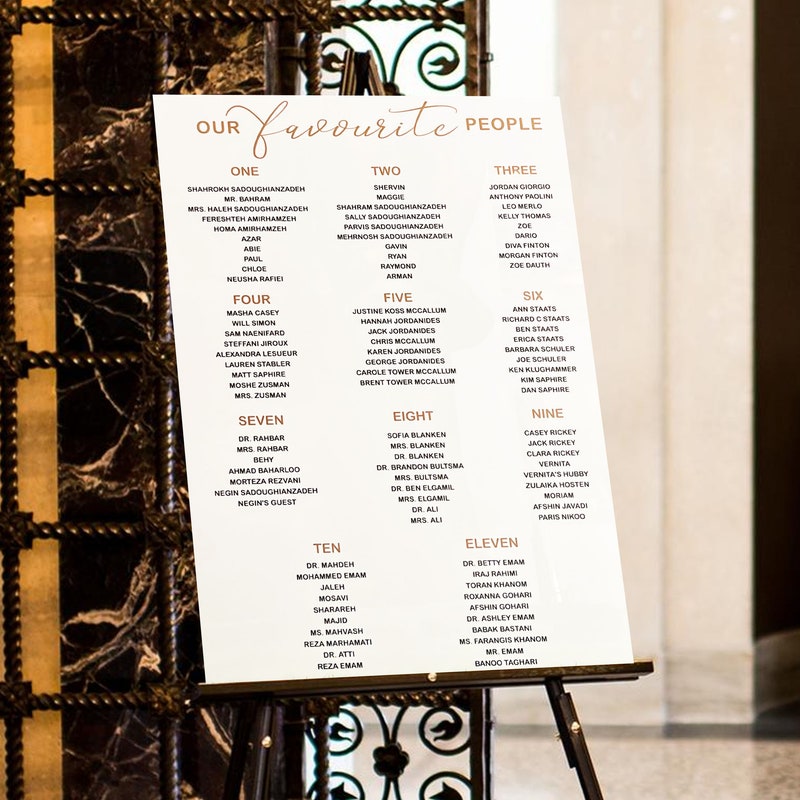 OUR favourite PEOPLE
ONE
SHAHROKH SADOUGHIANZADEH
MR. BAHRAM
MRS. HALEH SADOUGHIANZADEH
FERESHTEH AMIRHAMZEH
HOMA AMIRHAMZEH
AZAR
ABIE
PAUL
CHLOE
NEUSHA RAFIEI
TWO
SHERVIN
MAGGIE
SHAHRAM SADOUGHIANZADEH
SALLY SADOUGHIANZADEH
PARVIS SADOUGHIANZADEH
MEHRNOSH SADOUGHIANZADEH
GAVIN
RYAN
RAYMOND
ARMAN
THREE
JORDAN GIORGIO
ANTHONY PAOLINI
LEO MERLO
KELLY THOMAS
ZOE
DARIO
DIVA FINTON
MORGAN FINTON
ZOE DAUTH
FOUR
MASHA CASEY
WILL SIMON
SAM NAENIFARD
STEFFANI JIROUX
ALEXANDRA LESUEUR
LAUREN STABLER
MATT SAPHIRE
MOSHE ZUSMAN
MRS. ZUSMAN
FIVE
JUSTINE KOSS MCCALLUM
HANNAH JORDANIDES
JACK JORDANIDES
CHRIS MCCALLUM
KAREN JORDANIDES
GEORGE JORDANIDES
CAROLE TOWER MCCALLUM
BRENT TOWER MCCALLUM
SIX
ANN STAATS
RICHARD C STAATS
BEN STAATS
ERICA STAATS
BARBARA SCHULER
JOE SCHULER
KEN KLUGHAMMER
KIM SAPHIRE
DAN SAPHIRE
SEVEN
DR. RAHBAR
MRS. RAHBAR
BEHY
AHMAD BAHARLOO
MORTEZA REZVANI
NEGIN SADOUGHIANZADEH
NEGIN'S GUEST
EIGHT
SOFIA BLANKEN
MRS. BLANKEN
DR. BLANKEN
DR. BRANDON BULTSMA
MRS. BULTSMA
DR. BEN ELGAMIL
MRS. ELGAMIL
DR. ALI
MRS. ALI
NINE
CASEY RICKEY
JACK RICKEY
CLARA RICKEY
VERNITA
VERNITA'S HUBBY
ZULAIKA HOSTEN
MORIAM
AFSHIN JAVADI
PARIS NIKOO
TEN
DR. MAHDEH
MOHAMMED EMAM
JALEH
MOSAVI
SHARAREH
MAJID
MS. MAHVASH
REZA MARHAMATI
DR. ATTI
REZA EMAM
ELEVEN
DR. BETTY EMAM
IRAJ RAHIMI
TORAN KHANOM
ROXANNA GOHARI
AFSHIN GOHARI
DR. ASHLEY EMAM
BABAK BASTANI
MS. FARANGIS KHANOM
MR. EMAM
BANOO TAGHARI